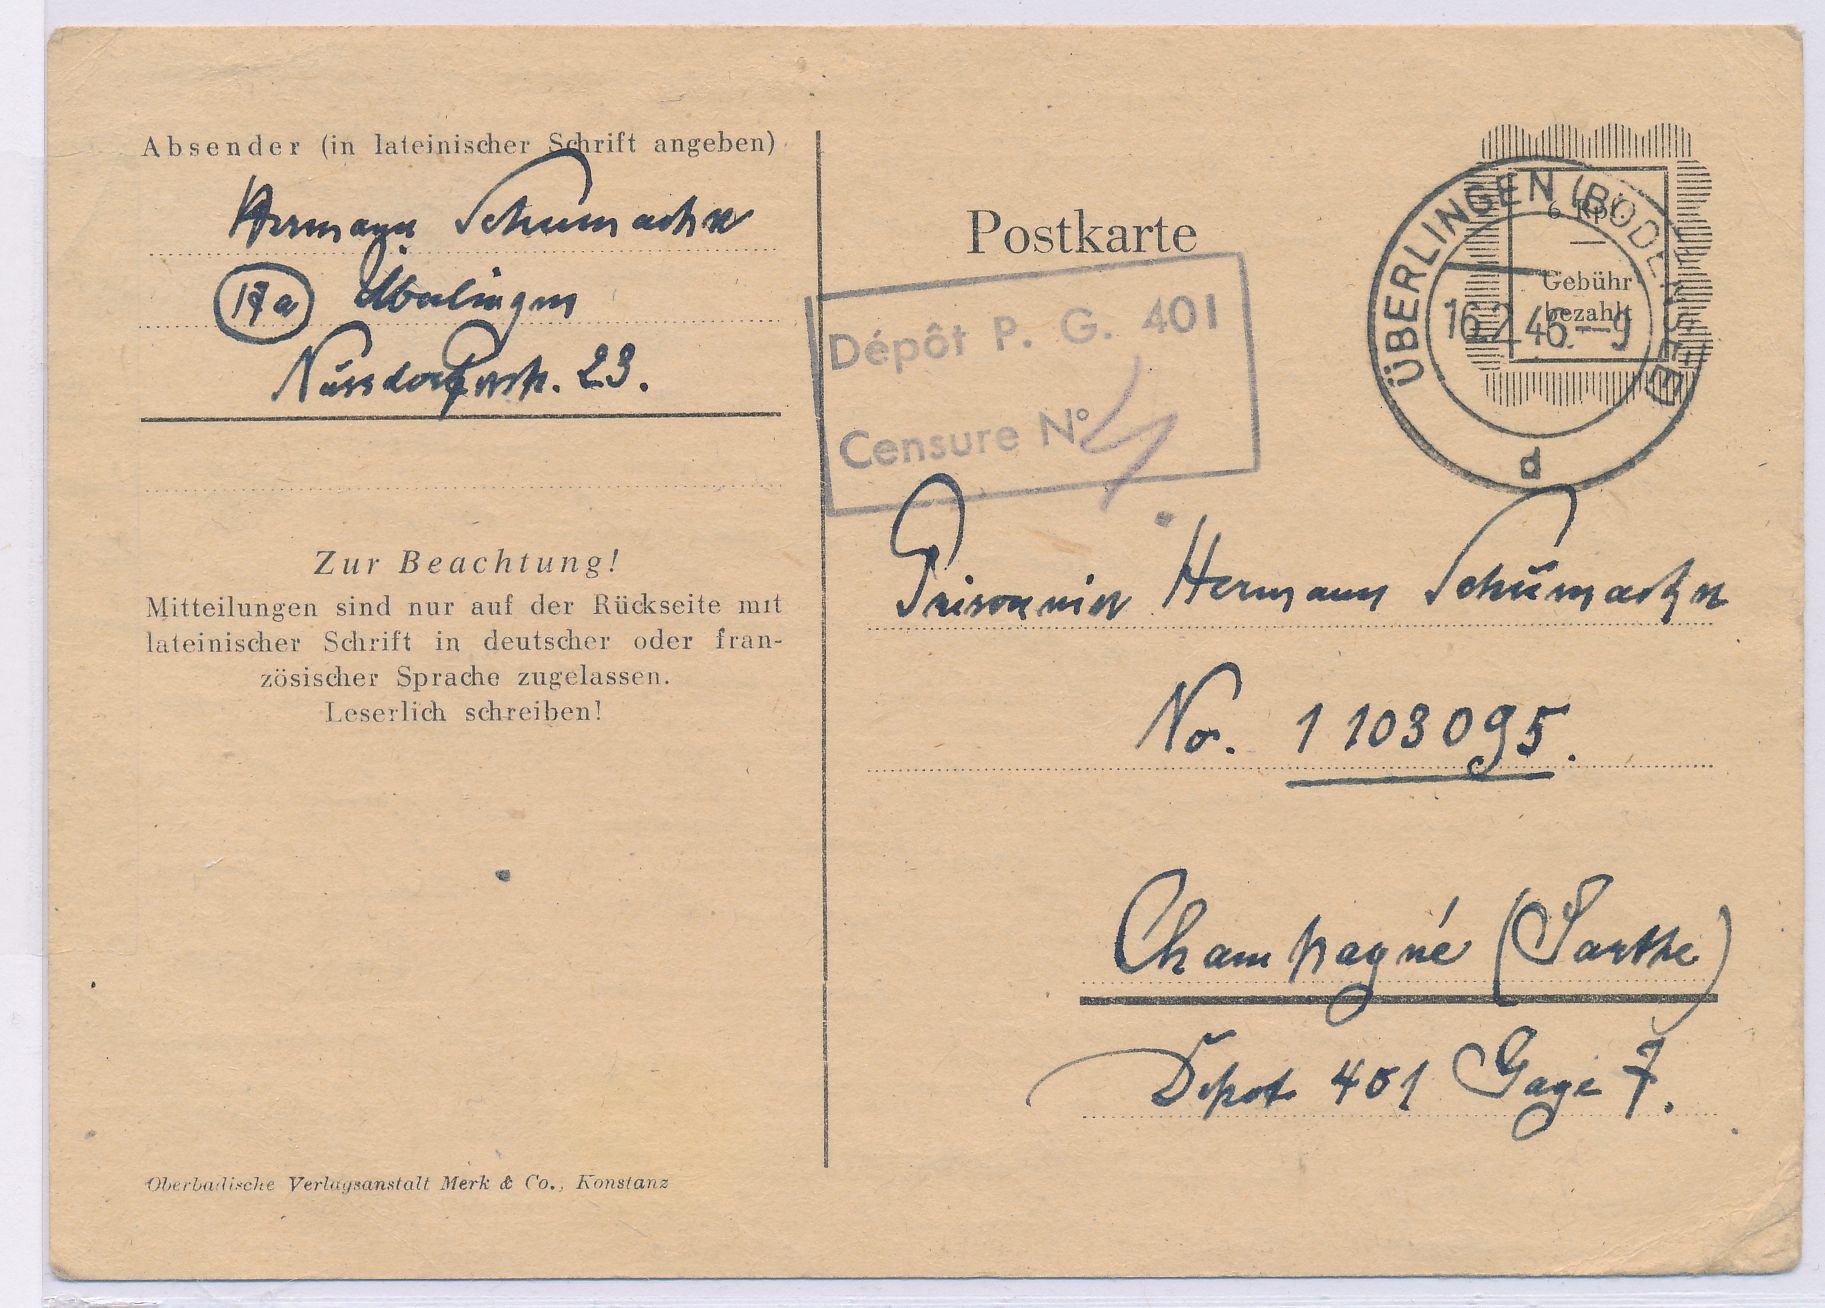 Absender (in lateinischer Schrift angeben)
Hermann Schumacher
17a Überlingen
Nussdorferstr. 23.
Zur Beachtung!
Mitteilungen sind nur auf der Rückseite mit
lateinischer Schrift in deutscher oder fran-
zösischer Sprache zugelassen.
Leserlich schreiben!
Oberbadische Verlagsanstalt Merk & Co., Konstanz
Postkarte
6 Rpf.
Gebühr
bezahlt
ÜBERLINGEN (BODENSEE)
16.2.46.-9
d
Dépôt P. G. 401
Censure Nº
Prisonnier Hermann Schumacher
No. 1103095.
Champagné (Sarthe)
Depot 401 Gage 7.